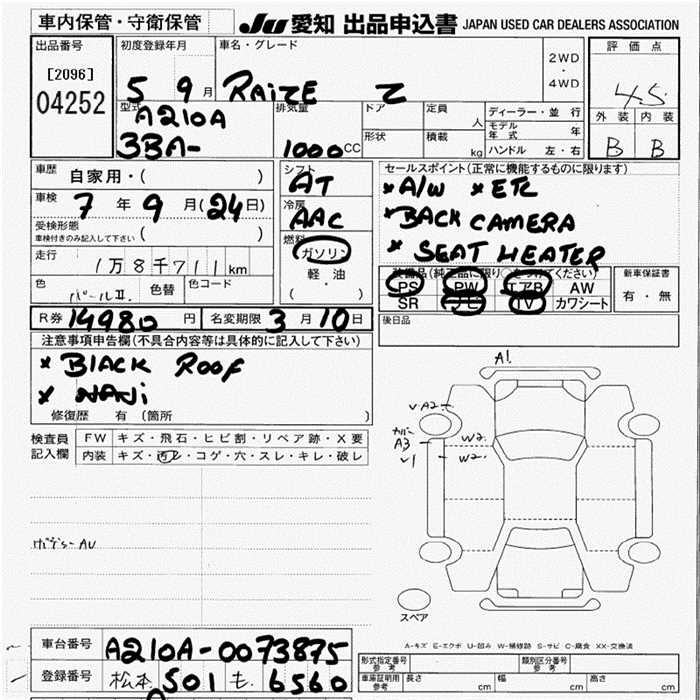 車内保管・守衛保管
JU 愛知 出品申込書 JAPAN USED CAR DEALERS ASSOCIATION
出品番号
[2096]
04252
初度登録年月
5 9月
車名・グレード
RAIZE Z
2WD
・
4WD
評価点
4.5
外装 内装
B B
型式
A210A
3BA-
排気量
1000cc
ドア
定員
人
形状
積載
kg
ディーラー・並行
モデル年式 年
ハンドル 左・右
車歴
自家用・( )
車検
7年9月(24日)
受検形態
車検付きのみ記入して下さい ( )
走行
1万8千711km
色
パールII.
色替
色コード
シフト
AT
冷房
AAC
燃料
ガソリン
軽油
( ・ )
セールスポイント(正常に機能するものに限ります)
*A/W *ETC
*BACK CAMERA
* SEAT HEATER
装備品(純正品に限り○をつけてください)
PS PW エアB AW
SR ナビ TV カワシート
新車保証書
有・無
R券 14980円
名変期限 3月10日
後日品
注意事項申告欄(不具合内容等は具体的に記入して下さい)
* BLACK ROOF
* NAVi
修復歴 有(箇所 )
検査員
記入欄
FW キズ・飛石・ヒビ割・リペア跡・X要
内装 キズ・汚レ・コゲ・穴・スレ・キレ・破レ
ボデーAU
A1.
A2.
A3
W2.
W2.
スペア
A-キズ E-エクボ U-凹み W-補修跡 S-サビ C-腐食 XX-交換済
車台番号
A210A-0073875
登録番号
松本 501 も 6560
形式指定番号
参考
類別区分番号
参考
車庫証明用
参考
長さ cm
幅 cm
高さ cm